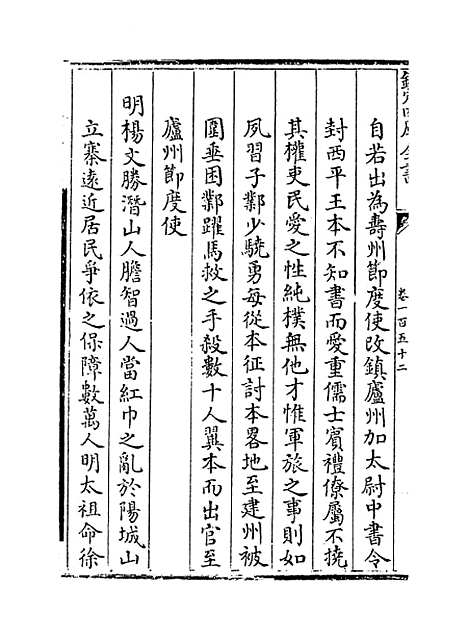 欽定四庫全書
卷一百五十二
自若出為壽州節度使改鎮廬州加太尉中書令
封西平王本不知書而愛重儒士賓禮僚屬不撓
其權吏民愛之性純樸無他才惟軍旅之事則如
夙習子鄴少驍勇每從本征討本畧地至建州被
圍垂困鄴躍馬救之手殺數十人翼本而出官至
廬州節度使
明楊文勝潛山人膽智過人當紅巾之亂於陽城山
立寨遠近居民爭依之保障數萬人明太祖命徐